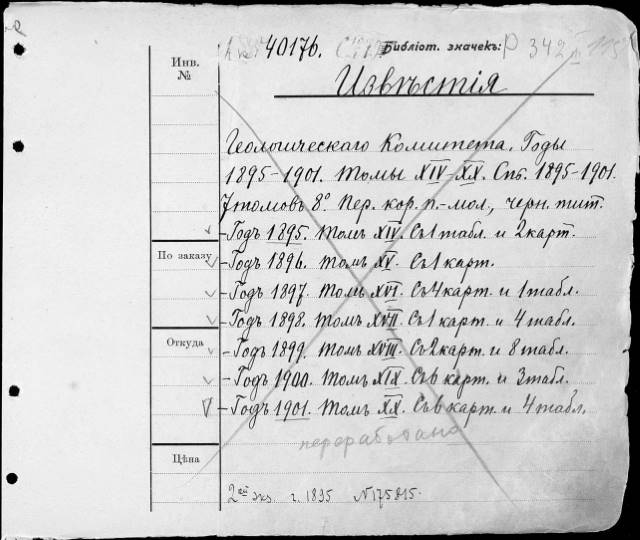 40176. Библіот. значекъ: Р 342
Инв.
№
Извѣстія
Геологическаго Комитета. Годы
1895-1901. Томы XIV-XX. Спб. 1895-1901.
7 томовъ 8°. Пер. кор. п.-мол., черн. тит.
- Годъ 1895. Томъ XIV. Съ 1 табл. и 2 карт.
По заказу
- Годъ 1896. Томъ XV. Съ 1 карт.
- Годъ 1897. Томъ XVI. Съ 4 карт. и 1 табл.
- Годъ 1898. Томъ XVII. Съ 1 карт. и 4 табл.
Откуда
- Годъ 1899. Томъ XVIII. Съ 2 карт. и 8 табл.
- Годъ 1900. Томъ XIX. Съ 6 карт. и 3 табл.
- Годъ 1901. Томъ XX. Съ 6 карт. и 4 табл.
переработано
Цѣна
2ой экз. г. 1895 N175815.